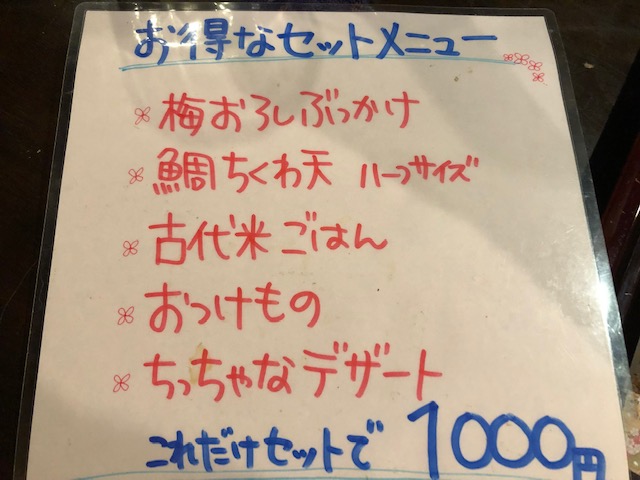 お得なセットメニュー
梅おろしぶっかけ
鯛ちくわ天 ハーフサイズ
古代米ごはん
おつけもの
ちっちゃなデザート
これだけセットで 1000円